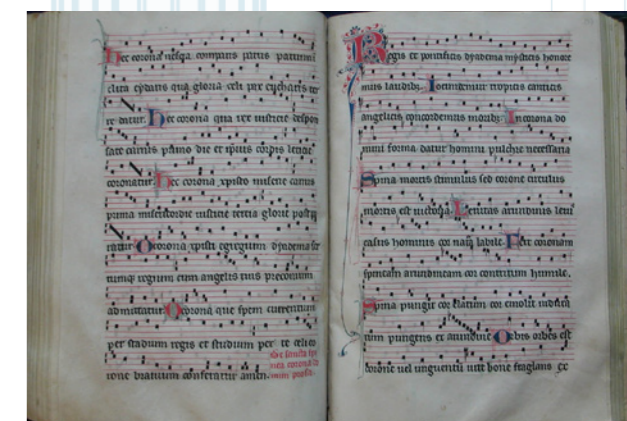 Hec corona nescia comparis partus patrimii
clica gloria celi per
re datur. Hec corona qua rex iusticie
sate carnis primo die et ipsius corpis letior
coronatur. Hec corona xpisto miserie carnis
prima misericordie iusticie tercia glorie
ratur. O corona xpisti egregium dyadema
regium cum angelis tuis preconium
admittatur. O corona que spem currentium
per stadium regis et studium per te celico
De sancta spi
nea corona do
rone bravium conferatur amen.
mini prosa.
Regis et pontificis dyadema mysticis honore
mus laudibus. Iocundemur tropicis canticis
angelicis concordemus moribus. In corona do
mini forma datur homini pulchre necessaria
Spina mortis stimulus sed corone circulus
mortis est victoria. Levitas arundinis levi
casus hominis cor namque labile. Fert coronam
spineam arundineam cor contritum humile.
Spina pungit cor elatum cor emolit
tum pungens ex arundine. Orbis orbes est
corone vel unguentum vite bone fraglans ex